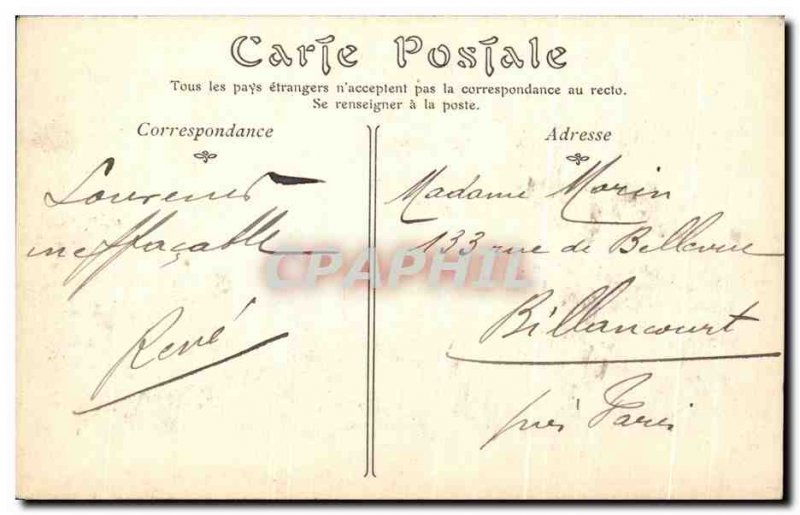 Carte Postale
Tous les pays étrangers n'acceptent pas la correspondance au recto.
Se renseigner à la poste.
Correspondance
Souvenir
ineffaçable
René
Adresse
Madame Morin
133 rue de Bellevue
Billancourt
près Paris
CPAPHIL